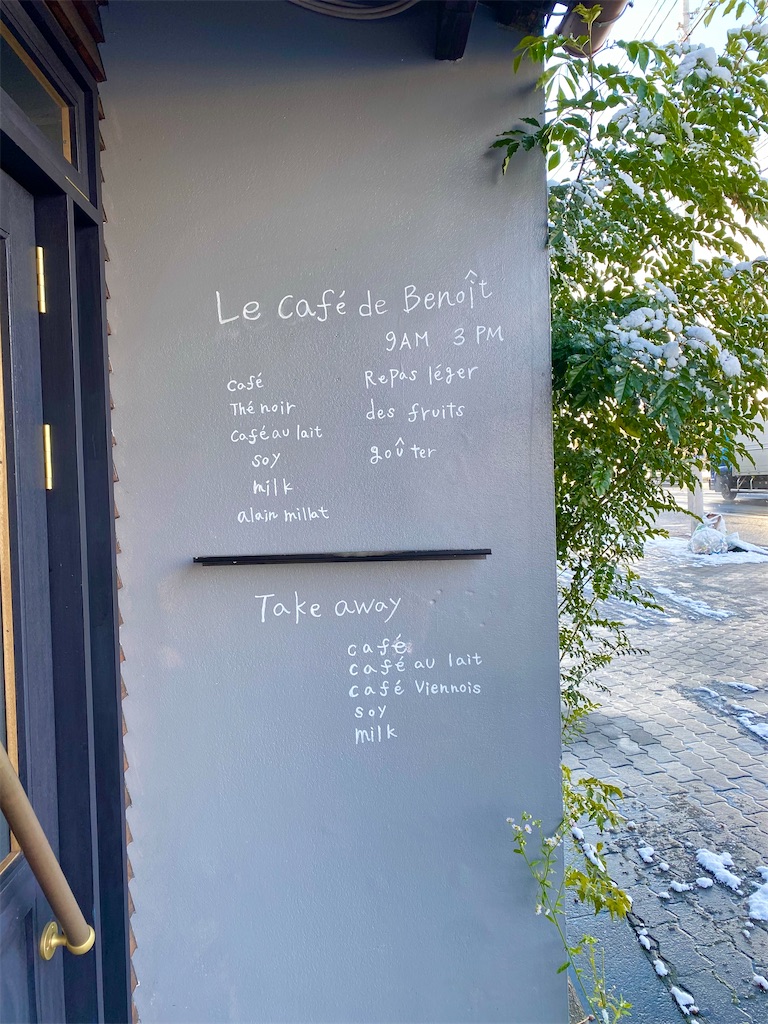 Le café de Benoît
9AM 3 PM
café
Thé noir
Café au lait
soy
milk
alain millat
Repas léger
des fruits
goûter
Take away
café
café au lait
café Viennois
soy
milk